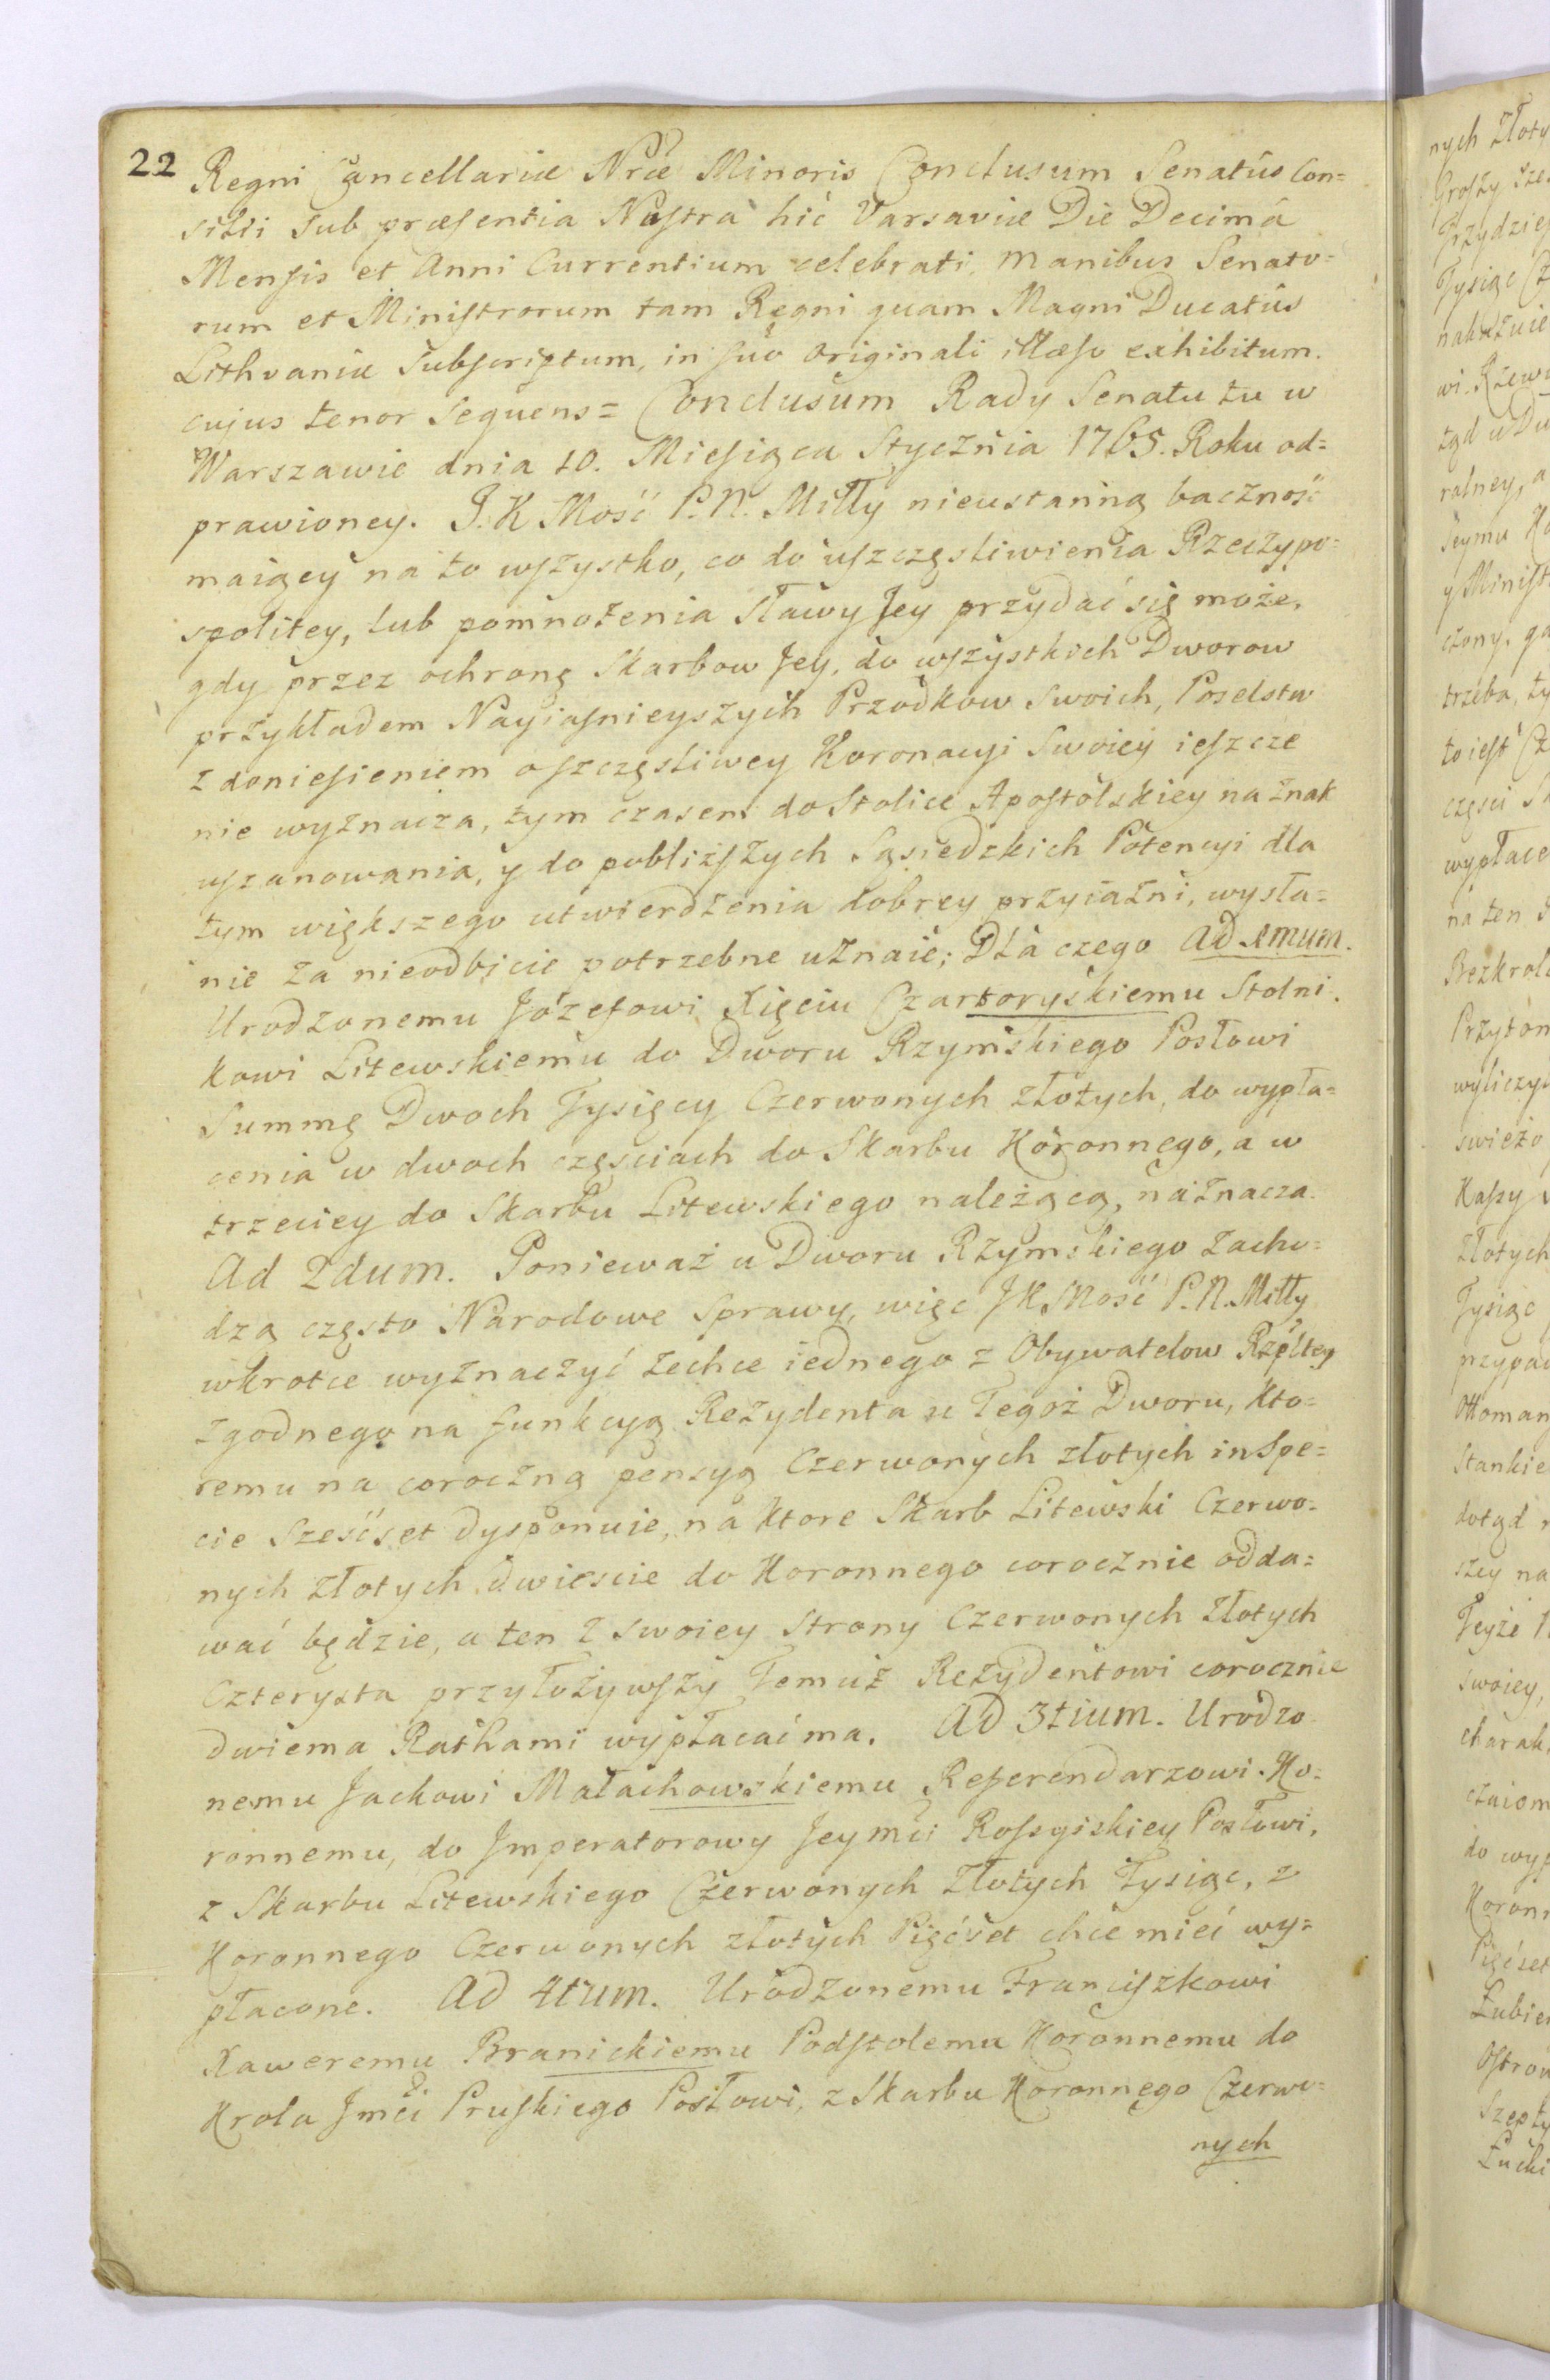 22
Regni Cancellariæ Nræ Minoris Conclusum Senatûs Con=
silii sub præsentia Nostra hic Varsaviæ Die Decimâ
Mensis et Anni Currentium celebrati, manibus Senato=
rum et Ministrorum tam Regni quam Magni Ducatûs
Lithvaniæ subscriptum, in suo originali illæso exhibitum.
cujus tenor sequens = Conclusum Rady Senatu tu w
Warszawie dnia 10. Miesiąca Stycznia 1765. Roku od=
prawioney. J. K Mość P. N. Miłły nieustanną baczność
maiący na to wszystko, co do uszczęsliwienia Rzeczypo=
spolitey, lub pomnożenia Sławy Jey przydać się może,
gdy przez ochronę Skarbow Jey, do wszystkich Dworow
przykładem Nayiasnieyszych Przodkow Swoich, Poselstw
z doniesieniem o szczęsliwey Koronacyi Swoiey ieszcze
nie wyznacza, tym czasem do Stolice Apostolskiey na znak
uszanowania, y do pobliższych Sąsiedzkich Potencyi dla
tym większego utwierdzenia dobrey przyiaźni, wysła=
nie za nieodbicie potrzebne uznaie; Dla czego Ad 1mum.
Urodzonemu Józefowi Xięciu Czartoryskiemu Stolni.
kowi Litewskiemu do Dworu Rzymskiego Posłowi
Summę Dwoch Tysięcy Czerwonych złotych, do wypła=
cenia w dwoch częsciach do Skarbu Koronnego, a w
trzeciey do Skarbu Litewskiego należącą, naznacza.
Ad 2dum. Ponieważ u Dworu Rzymskiego zacho=
dzą często Narodowe Sprawy, więc J K Mość P. N. Miłły
wkrotce wyznaczyć zechce iednego z Obywatelow Rzpltey
zgodnego na funkcyą Rezydenta u Tegoż Dworu, kto=
remu na coroczną pensyą Czerwonych złotych in Spe=
cie Sześćset dysponuie, na ktore Skarb Litewski Czerwo=
nych złotych dwiescie do Koronnego corocznie odda=
wać będzie, a ten z swoiey strony Czerwonych złotych
Czterysta przyłożywszy Temuż Rezydentowi corocznie
dwiema Rathami wypłacać ma. Ad 3tium. Urodzo
nemu Jackowi Małachowskiemu Referendarzowi Ko=
ronnemu, do Jmperatorowy Jeymci Rossyiskiey Posłowi,
z Skarbu Litewskiego Czerwonych złotych Tysiąc, z
Koronnego Czerwonych złotych Pięćset chce mieć wy=
płacone. Ad 4tum. Urodzonemu Franciszkowi
Xaweremu Branickiemu Podstolemu Koronnemu do
Krola Jmci Pruskiego Posłowi, z Skarbu Koronnego Czerwo=
nych